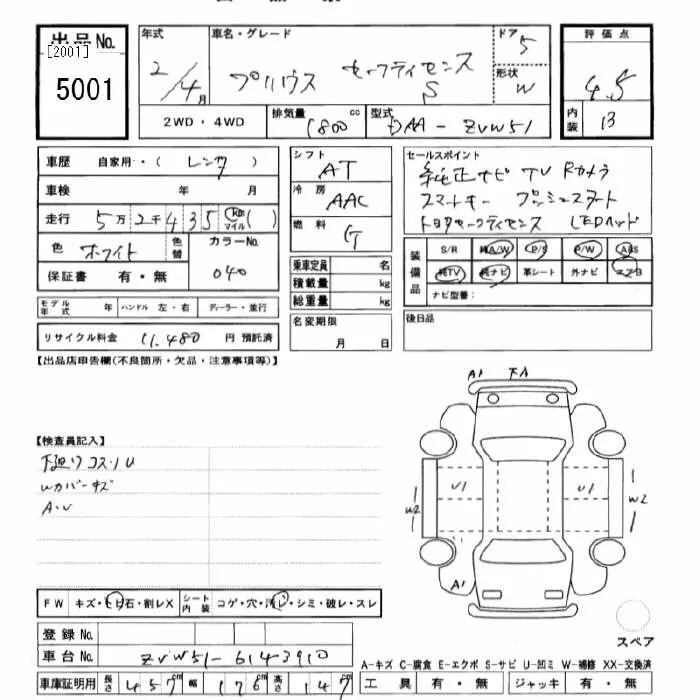 出品No.
[2001]
5001
年式 車名・グレード ドア 評価点
2/4月 プリウス セーフティセンス 5
S 形状 W 4.5
2WD・4WD 排気量 1800 cc 型式 DAA-ZVW51 内装 B
車歴 自家用・( レンタ )
車検 年 月
走行 5万2千435 km マイル ( )
色 ホワイト 色替 カラーNo.
保証書 有・無 040
モデル年式 年 ハンドル 左・右 ディーラー・並行
リサイクル料金 11,480 円 預託済
シフト AT
冷房 AAC
燃料 G
乗車定員 名
積載量 kg
総重量 kg
名変期限
月 日
セールスポイント
純正ナビ TV Rカメラ
スマートキー プッシュスタート
トヨタセーフティセンス LEDヘッド
装備品 S/R 純A/W P/S P/W ABS
純TV 純ナビ 革シート 外ナビ エアB
ナビ型番:
後日品
【出品店申告欄(不良箇所・欠品・注意事項等)】
A1 下A
【検査員記入】
下廻りコスリU
Wカバーキズ
A・U
U1 U1
W2 W2
A1
FW キズ・ヒビ・石・割レX シート内装 コゲ・穴・汚レ・シミ・破レ・スレ
登録No.
車台No. ZVW51-6143910
車庫証明用 長さ 457 幅 176 高さ 147
スペア
A-キズ C-腐食 E-エクボ S-サビ U-凹ミ W-補修 XX-交換済
工具 有・無 ジャッキ 有・無